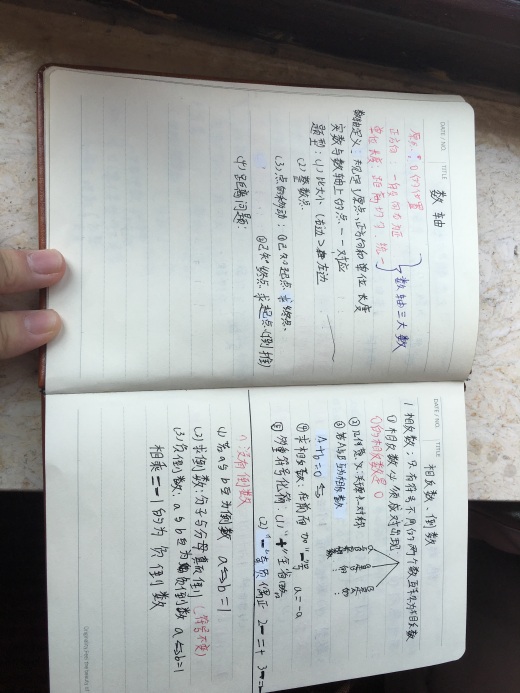 DATE / NO.
TITLE
数轴
原点:0的位置
正方向:一般向右为正
单位长度:距离均匀、统一
数轴三大数
数轴定义:规定了原点,正方向和单位长度
实数与数轴上的点一一对应
题型:(1)比大小(右边>左边
(2)整数点
(3)点的移动:①已知起点,求终点、
②已知终点,求起点(倒推)
(4)距离问题:
DATE / NO.
TITLE
相反数、倒数
1 相反数:只有符号不同的两个数互为相反数
①相反数必须成对出现
0的相反数是0
②几何意义:关于原点对称
③若A,B互为相反数
A+b=0
④求相反数:在前面加"—"号 a=-a
⑤多重符号化简:(1)"+"全省略
(2)"—"奇负偶正 2—=+ 3—=—
0没有倒数
(1)若a,b互为倒数 a b=1
(2)求倒数:分子与分母颠倒(符号不变)
(3)负倒数:a,b互为负倒数 a b=1
相乘=-1的为负倒数